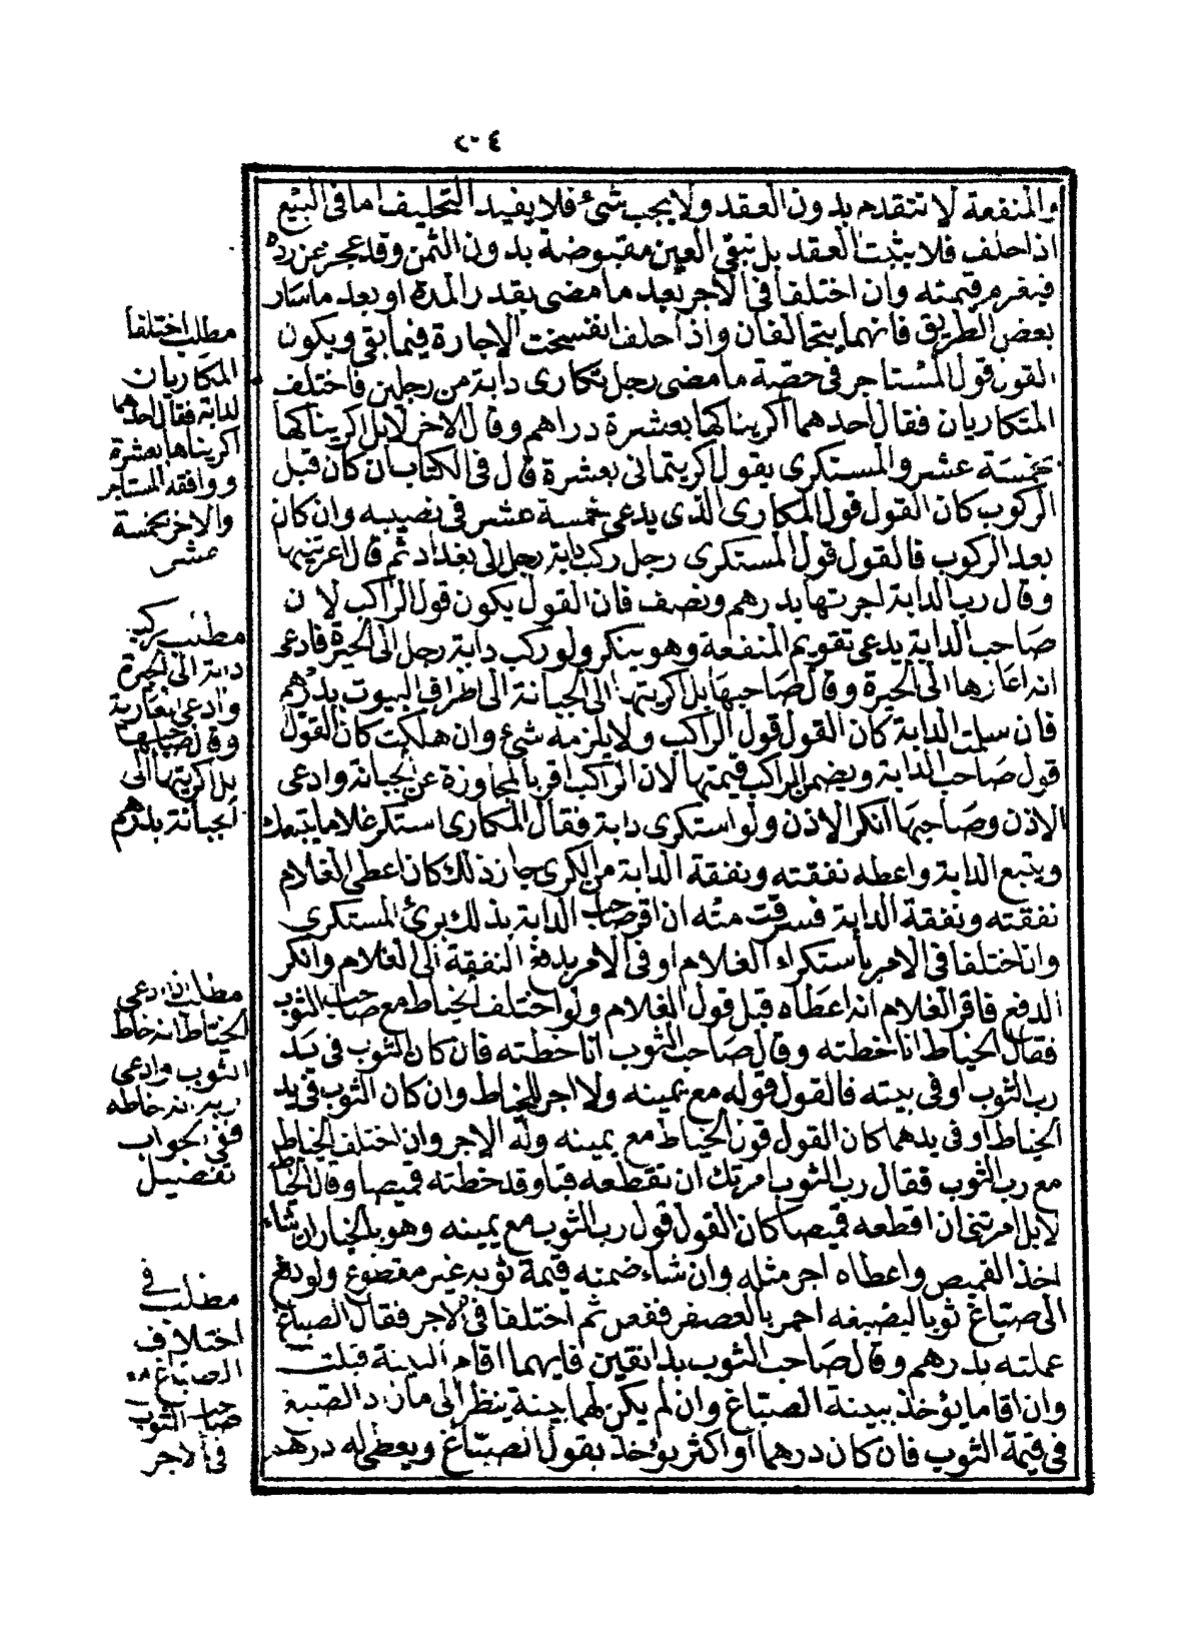 ٢٠٤
والمنفعة لا تتقدم بدون العقد ولا يجب شئ فلا يفيد التحليف اما فى البيع
اذا حلف فلا يثبت العقد بل تبقى العين مقبوضة بدون الثمن وقد عجز عن رده
فيغرم قيمته وان اختلفا فى الاجر بعد ما مضى بقدر المدة او بعد ما سار
بعض الطريق فانهما يتحالفان واذا حلفا انفسخت الاجارة فيما بقى ويكون
القول قول المستاجر فى حصة ما مضى رجل تكارى دابة من رجلين فاختلف
المتكاريان فقال احدهما اكريناكها بعشرة دراهم وقال الاخر لا بل اكريناكها
بخمسة عشر والمستكرى يقول اكريتمانى بعشرة قال فى الكتاب ان كان قبل
الركوب كان القول قول المكارى الذى يدعى خمسة عشر فى نصيبه وان كان
بعد الركوب فالقول قول المستكرى رجل ركب دابة رجل الى بغداد ثم قال اعرتنيها
وقال رب الدابة اجرتها بدرهم ونصف فان القول يكون قول الراكب لان
صاحب الدابة يدعى تقويم المنفعة وهو ينكر ولو ركب دابة رجل الى الحيرة فادعى
انه اعارها الى الحيرة وقال صاحبها بل اكريتها الى الجبانة الى اطراف البيوت بدرهم
فان سلمت الدابة كان القول قول الراكب ولا يلزمه شئ وان هلكت كان القول
قول صاحب الدابة ويضمن الراكب قيمتها لان الراكب اقر بالمجاوزة عن الجبانة وادعى
الاذن وصاحبها انكر الاذن ولو استكرى دابة فقال المكارى استكر غلاما يتبعك
ويتبع الدابة واعطه نفقته ونفقة الدابة من الكرى جاز ذلك كان اعطى الغلام
نفقته ونفقة الدابة فسرقت منه ان اقر صاحب الدابة بذلك برئ المستكرى
وان اختلفا فى الامر باستكراء الغلام او فى الامر بدفع النفقة الى الغلام وانكر
الدفع فاقر الغلام انه اعطاه قبل قول الغلام ولو اختلف الخياط مع صاحب الثوب
فقال الخياط انا خطته وقال صاحب الثوب انا خطته فان كان الثوب فى يد
رب الثوب او فى بيته فالقول قوله مع يمينه ولا اجر للخياط وان كان الثوب فى يد
الخياط او فى يدهما كان القول قول الخياط مع يمينه وله الاجر وان اختلف الخياط
مع رب الثوب فقال رب الثوب امرتك ان تقطعه قبا وقد خطته قميصا وقال الخياط
لا بل امرتنى ان اقطعه قميصا كان القول قول رب الثوب مع يمينه وهو بالخيار ان شاء
اخذ القميص واعطاه اجر مثله وان شاء ضمنه قيمة ثوبه غير مقطوع ولو دفع
الى صباغ ثوبا ليصبغه احمر بالعصفر ففعل ثم اختلفا فى الاجر فقال الصباغ
عملته بدرهم وقال صاحب الثوب بدانقين فايهما اقام البينة قبلت
وان اقاما يؤخذ ببينة الصباغ وان لم يكن لهما بينة ينظر الى ما زاد الصبغ
فى قيمة الثوب فان كان درهما او اكثر يؤخذ بقول الصباغ ويعطى له درهم
مطلب اختلفا
المكاريان
لدابة فقال احدهما
اكريناها بعشرة
ووافقه المستاجر
والاخر بخمسة
عشر
مطلب ركب
دابة الى الحيرة
وادعى انها عارية
وقال صاحبها
بل اكريتها الى
الجبانة بدرهم
مطلب اذا ادعى
الخياط انه خاط
الثوب وادعى
ربه انه خاطه
ففى الجواب
تفصيل
مطلب فى
اختلاف
الصباغ مع
صاحب الثوب
فى الاجر